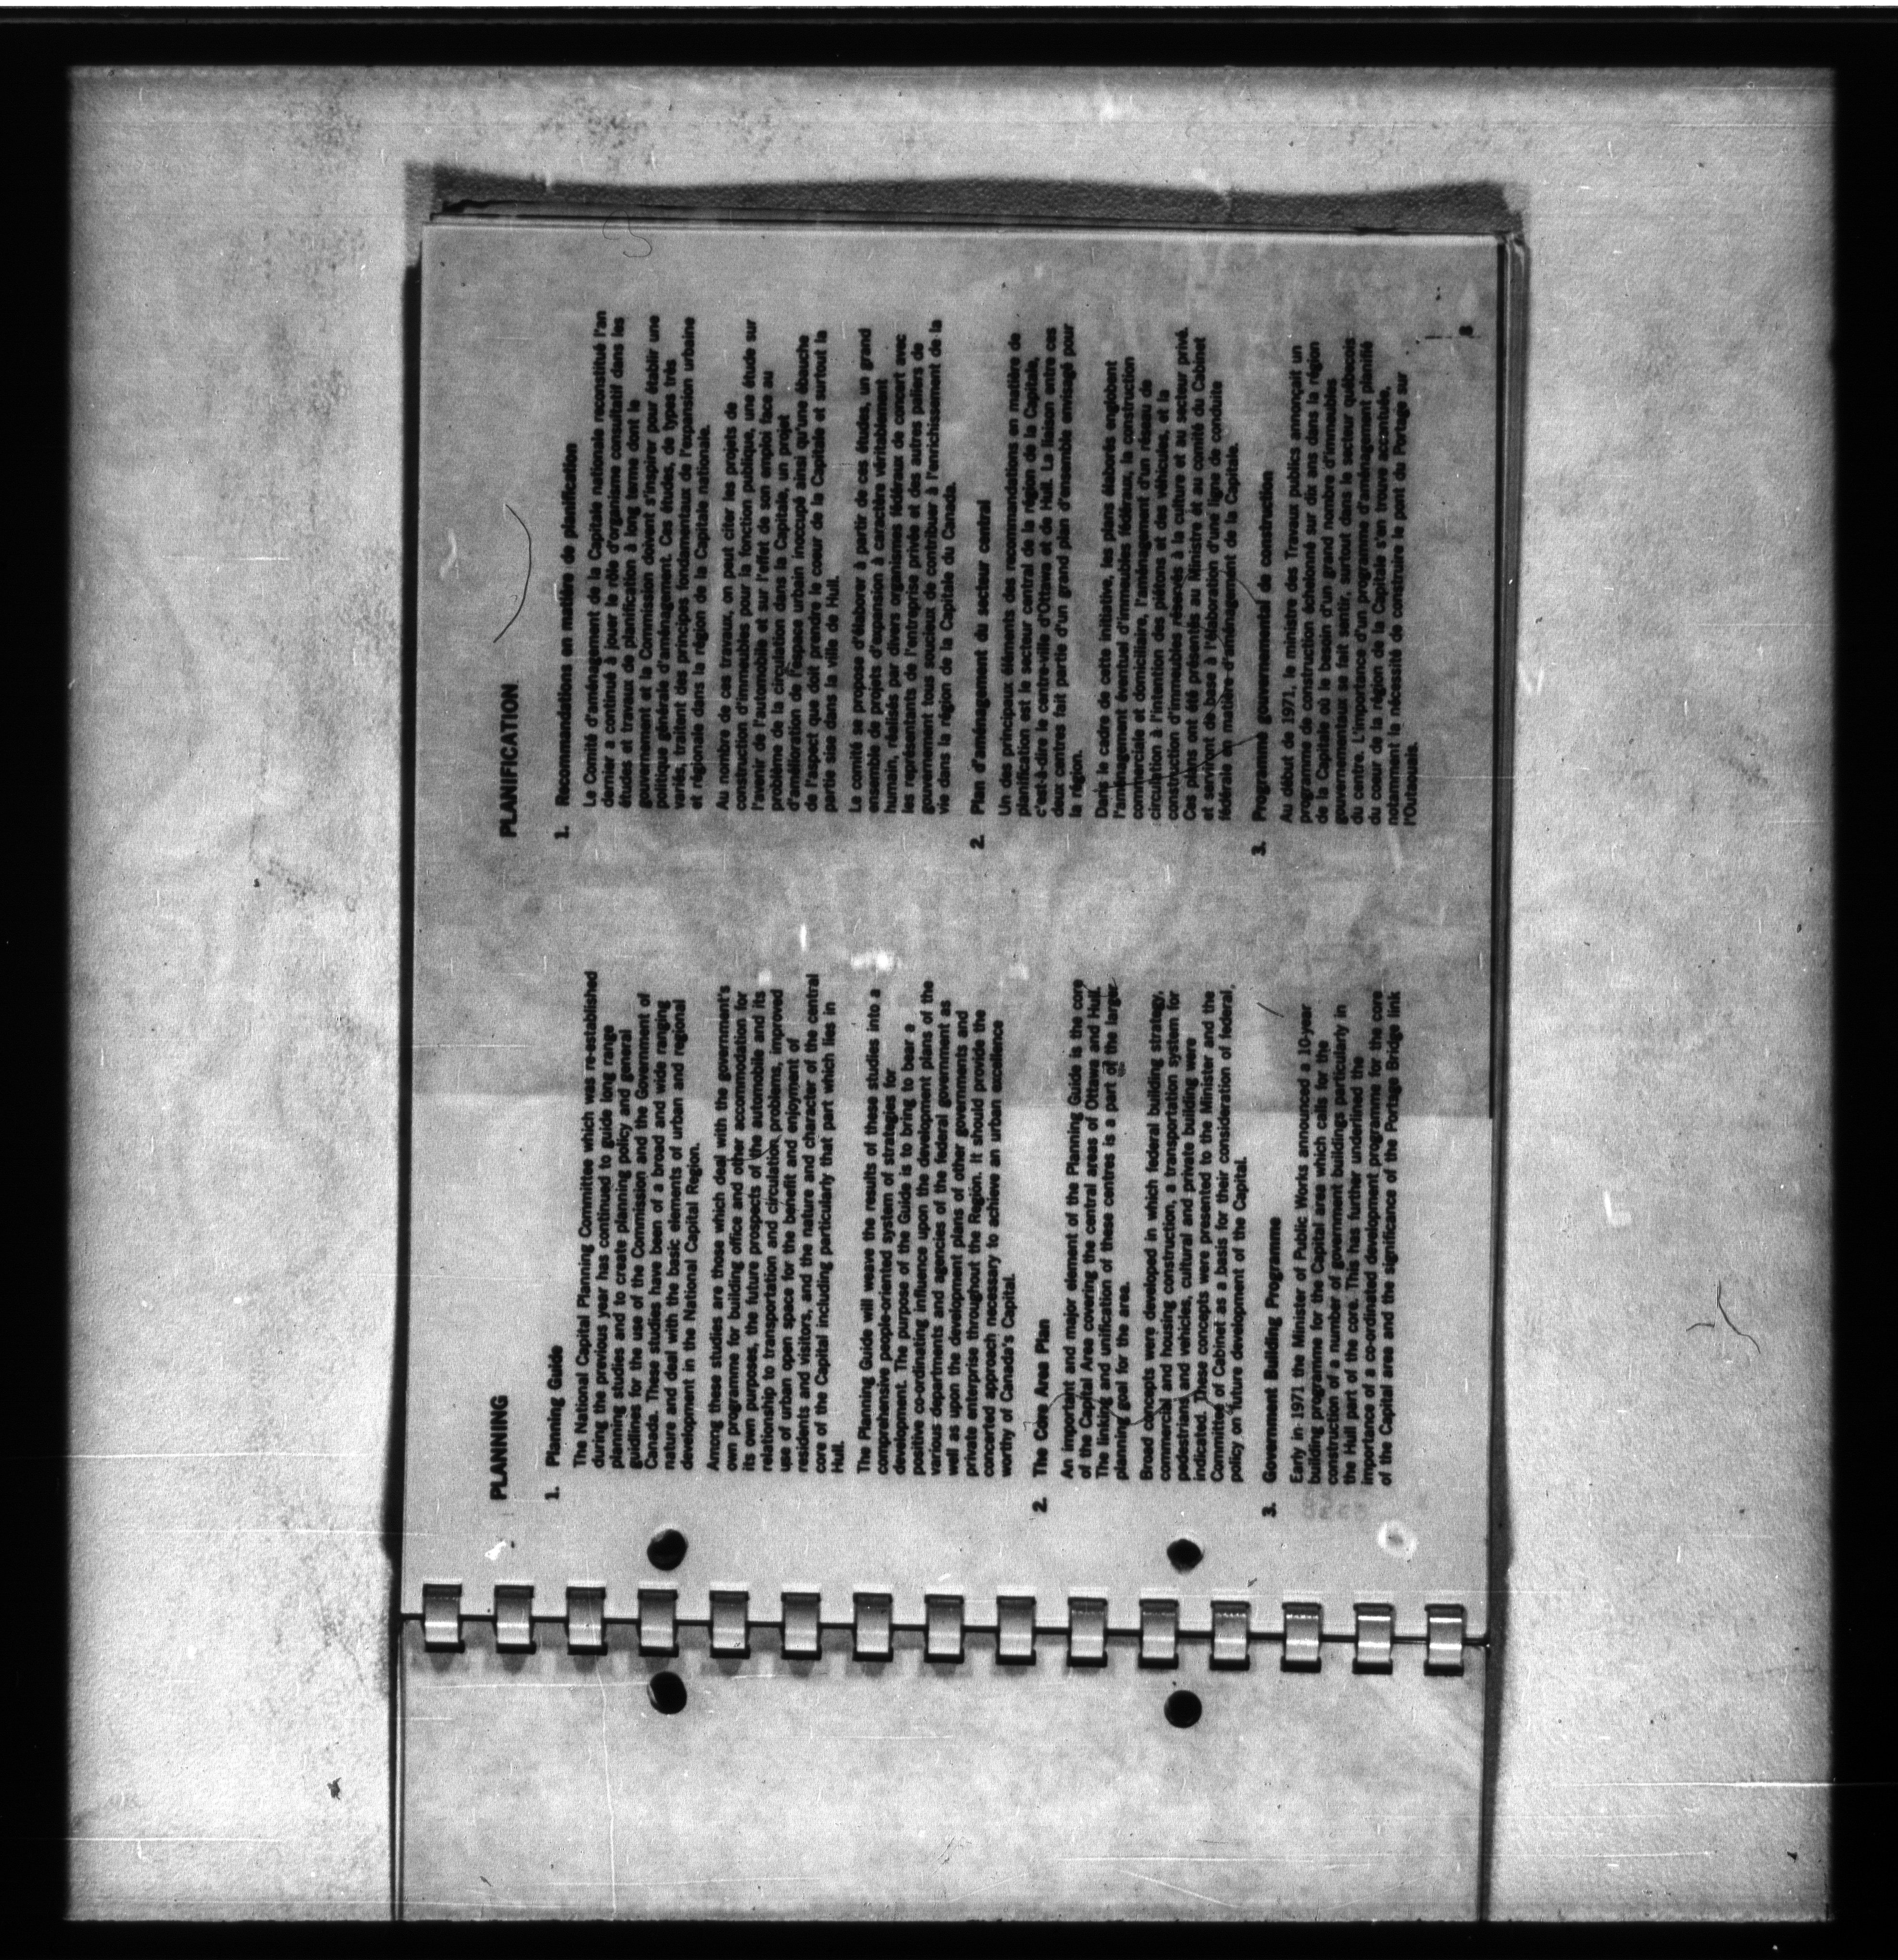 PLANNING
1. Planning Guide
The National Capital Planning Committee which was re-established
during the previous year has continued to guide long range
planning studies and to create planning policy and general
guidlines for the use of the Commission and the Government of
Canada. These studies have been of a broad and wide ranging
nature and deal with the basic elements of urban and regional
development in the National Capital Region.
Among these studies are those which deal with the government's
own programme for building office and other accommodation for
its own purposes, the future prospects of the automobile and its
relationship to transportation and circulation problems, improved
use of urban open space for the benefit and enjoyment of
residents and visitors, and the nature and character of the central
core of the Capital including particularly that part which lies in
Hull.
The Planning Guide will weave the results of these studies into a
comprehensive people-oriented system of strategies for
development. The purpose of the Guide is to bring to bear a
positive co-ordinating influence upon the development plans of the
various departments and agencies of the federal government as
well as upon the development plans of other governments and
private enterprise throughout the Region. It should provide the
concerted approach necessary to achieve an urban excellence
worthy of Canada's Capital.
2. The Core Area Plan
An important and major element of the Planning Guide is the core
of the Capital Area covering the central areas of Ottawa and Hull.
The linking and unification of these centres is a part of the larger
planning goal for the area.
Broad concepts were developed in which federal building strategy,
commercial and housing construction, a transportation system for
pedestrians and vehicles, cultural and private building were
indicated. These concepts were presented to the Minister and the
Committee of Cabinet as a basis for their consideration of federal
policy on future development of the Capital.
3. Government Building Programme
Early in 1971 the Minister of Public Works announced a 10-year
building programme for the Capital area which calls for the
construction of a number of government buildings particularly in
the Hull part of the core. This has further underlined the
importance of a co-ordinated development programme for the core
of the Capital area and the significance of the Portage Bridge link
PLANIFICATION
1. Recommandations en matière de planification
Le Comité d'aménagement de la Capitale nationale reconstitué l'an
dernier a continué à jouer le rôle d'organisme consultatif dans les
études et travaux de planification à long terme dont le
gouvernement et la Commission doivent s'inspirer pour établir une
politique générale d'aménagement. Ces études, de types très
variés, traitent des principes fondamentaux de l'expansion urbaine
et régionale dans la région de la Capitale nationale.
Au nombre de ces travaux, on peut citer les projets de
construction d'immeubles pour la fonction publique, une étude sur
l'avenir de l'automobile et sur l'effet de son emploi face au
problème de la circulation dans la Capitale, un projet
d'amélioration de l'espace urbain inoccupé ainsi qu'une ébauche
de l'aspect que doit prendre le coeur de la Capitale et surtout la
partie sise dans la ville de Hull.
Le comité se propose d'élaborer à partir de ces études, un grand
ensemble de projets d'expansion à caractère véritablement
humain, réalisés par divers organismes fédéraux de concert avec
les représentants de l'entreprise privée et des autres paliers de
gouvernement tous soucieux de contribuer à l'enrichissement de la
vie dans la région de la Capitale du Canada.
2. Plan d'aménagement du secteur central
Un des principaux éléments des recommandations en matière de
planification est le secteur central de la région de la Capitale,
c'est-à-dire le centre-ville d'Ottawa et de Hull. La liaison entre ces
deux centres fait partie d'un grand plan d'ensemble envisagé pour
la région.
Dans le cadre de cette initiative, les plans élaborés englobent
l'aménagement éventuel d'immeubles fédéraux, la construction
commerciale et domiciliaire, l'aménagement d'un réseau de
circulation à l'intention des piétons et des véhicules, et la
construction d'immeubles réservés à la culture et au secteur privé.
Ces plans ont été présentés au Ministre et au comité du Cabinet
et serviront de base à l'élaboration d'une ligne de conduite
fédérale en matière d'aménagement de la Capitale.
3. Programme gouvernemental de construction
Au début de 1971, le ministre des Travaux publics annonçait un
programme de construction échelonné sur dix ans dans la région
de la Capitale où le besoin d'un grand nombre d'immeubles
gouvernementaux se fait sentir, surtout dans le secteur québécois
du centre. L'importance d'un programme d'aménagement planifié
du coeur de la région de la Capitale s'en trouve accentuée,
notamment la nécessité de construire le pont du Portage sur
l'Outaouais.